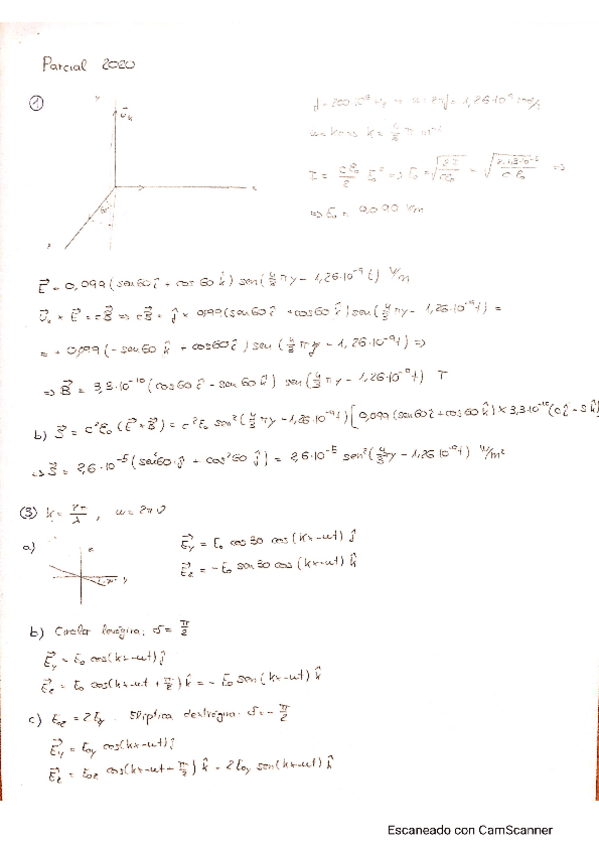 Parcial 2020
①
y
k = 4/3 π m⁻¹
⇒ E₀ = 0,099 V/m
E⃗ = 0,099 (sen60 î + cos60 k̂) sen(4/3 πy - 1,26·10⁻⁹ t) V/m
U⃗ₖ × E⃗ = cB⃗ ⇒ cB⃗ = ĵ × 0,099 (sen60 î + cos60 k̂) sen(4/3 πy - 1,26·10⁻⁹ t) =
= + 0,099 (-sen60 k̂ + cos60 î) sen(4/3 πy - 1,26·10⁻⁹ t) ⇒
⇒ B⃗ = 3,3·10⁻¹⁰ (cos60 î - sen60 k̂) sen(4/3 πy - 1,26·10⁻⁹ t) T
b) S⃗ = c²ε₀ (E⃗ × B⃗) = c²ε₀ sen²(4/3 πy - 1,26·10⁻⁹ t) [0,099 (sen60 î + cos60 k̂) × 3,3·10⁻¹⁰
⇒ S⃗ = 2,6·10⁻⁵ (sen²60 ĵ + cos²60 ĵ) = 2,6·10⁻⁵ sen²(4/3 πy - 1,26·10⁻⁹ t) W/m²
③ k = 2π/λ , ω = 2πν
a)
E⃗y = E₀ cos30 cos(kx-ωt) ĵ
E⃗z = -E₀ sen30 cos(kx-ωt) k̂
b) Circular levógira: δ = π/2
E⃗y = E₀ cos(kx-ωt) ĵ
E⃗z = E₀ cos(kx-ωt + π/2) k̂ = - E₀ sen(kx-ωt) k̂
c) E₀z = 2E₀y. Elíptica dextrógira: δ = -π/2
E⃗y = E₀y cos(kx-ωt) ĵ
E⃗z = E₀z cos(kx-ωt - π/2) k̂ = 2E₀y sen(kx-ωt) k̂
Escaneado con CamScanner